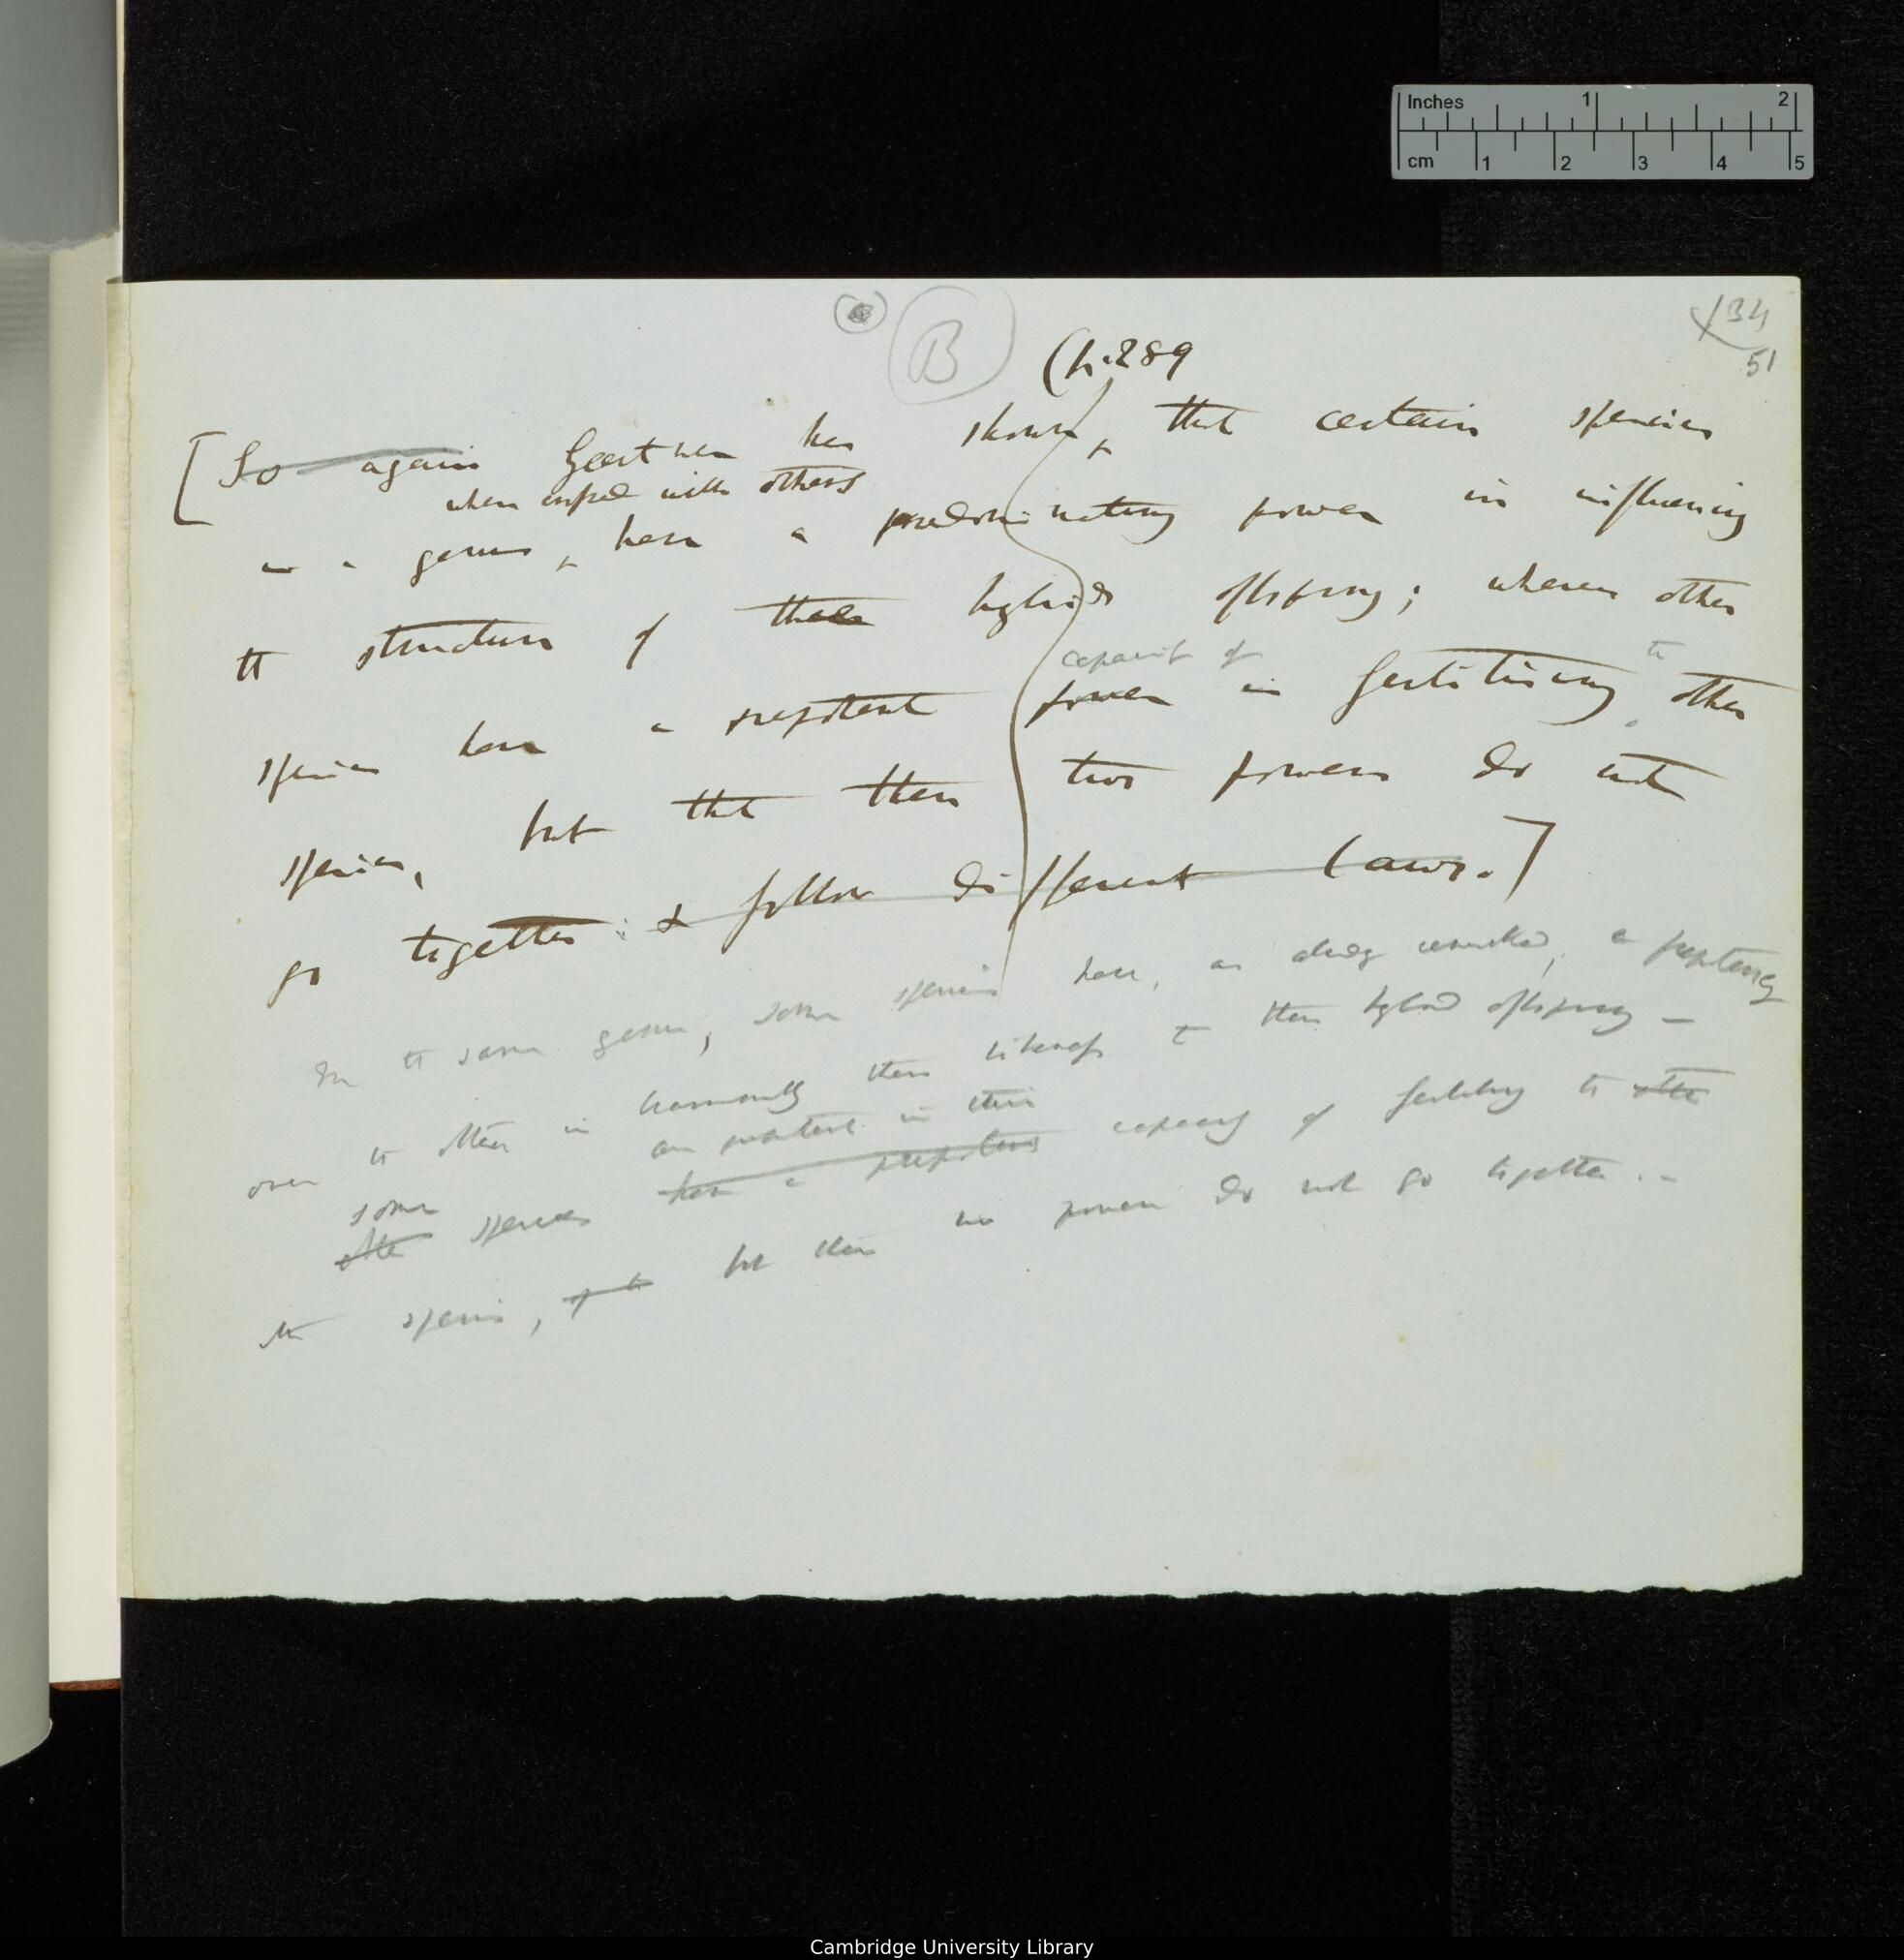 Inches 1 2
cm 1 2 3 4 5
B
(p. 289
34
51
[So again Gærtner has shown, that certain species
when crossed with others
in a genus, have a predominating power in influencing
the structure of their hybrid offspring; whereas other
capacity of
species have a prepotent power in fertilising other
species, but that these two powers do not
go together: & follow different laws.]
In the same genus, some species have, as already remarked, a prepotency
over the other in transmitting their likeness to their hybrid offspring —
are prepotent in their
some
other species have a prepotent capacity of fertility to other
species, but these two powers do not go together. —
Cambridge University Library